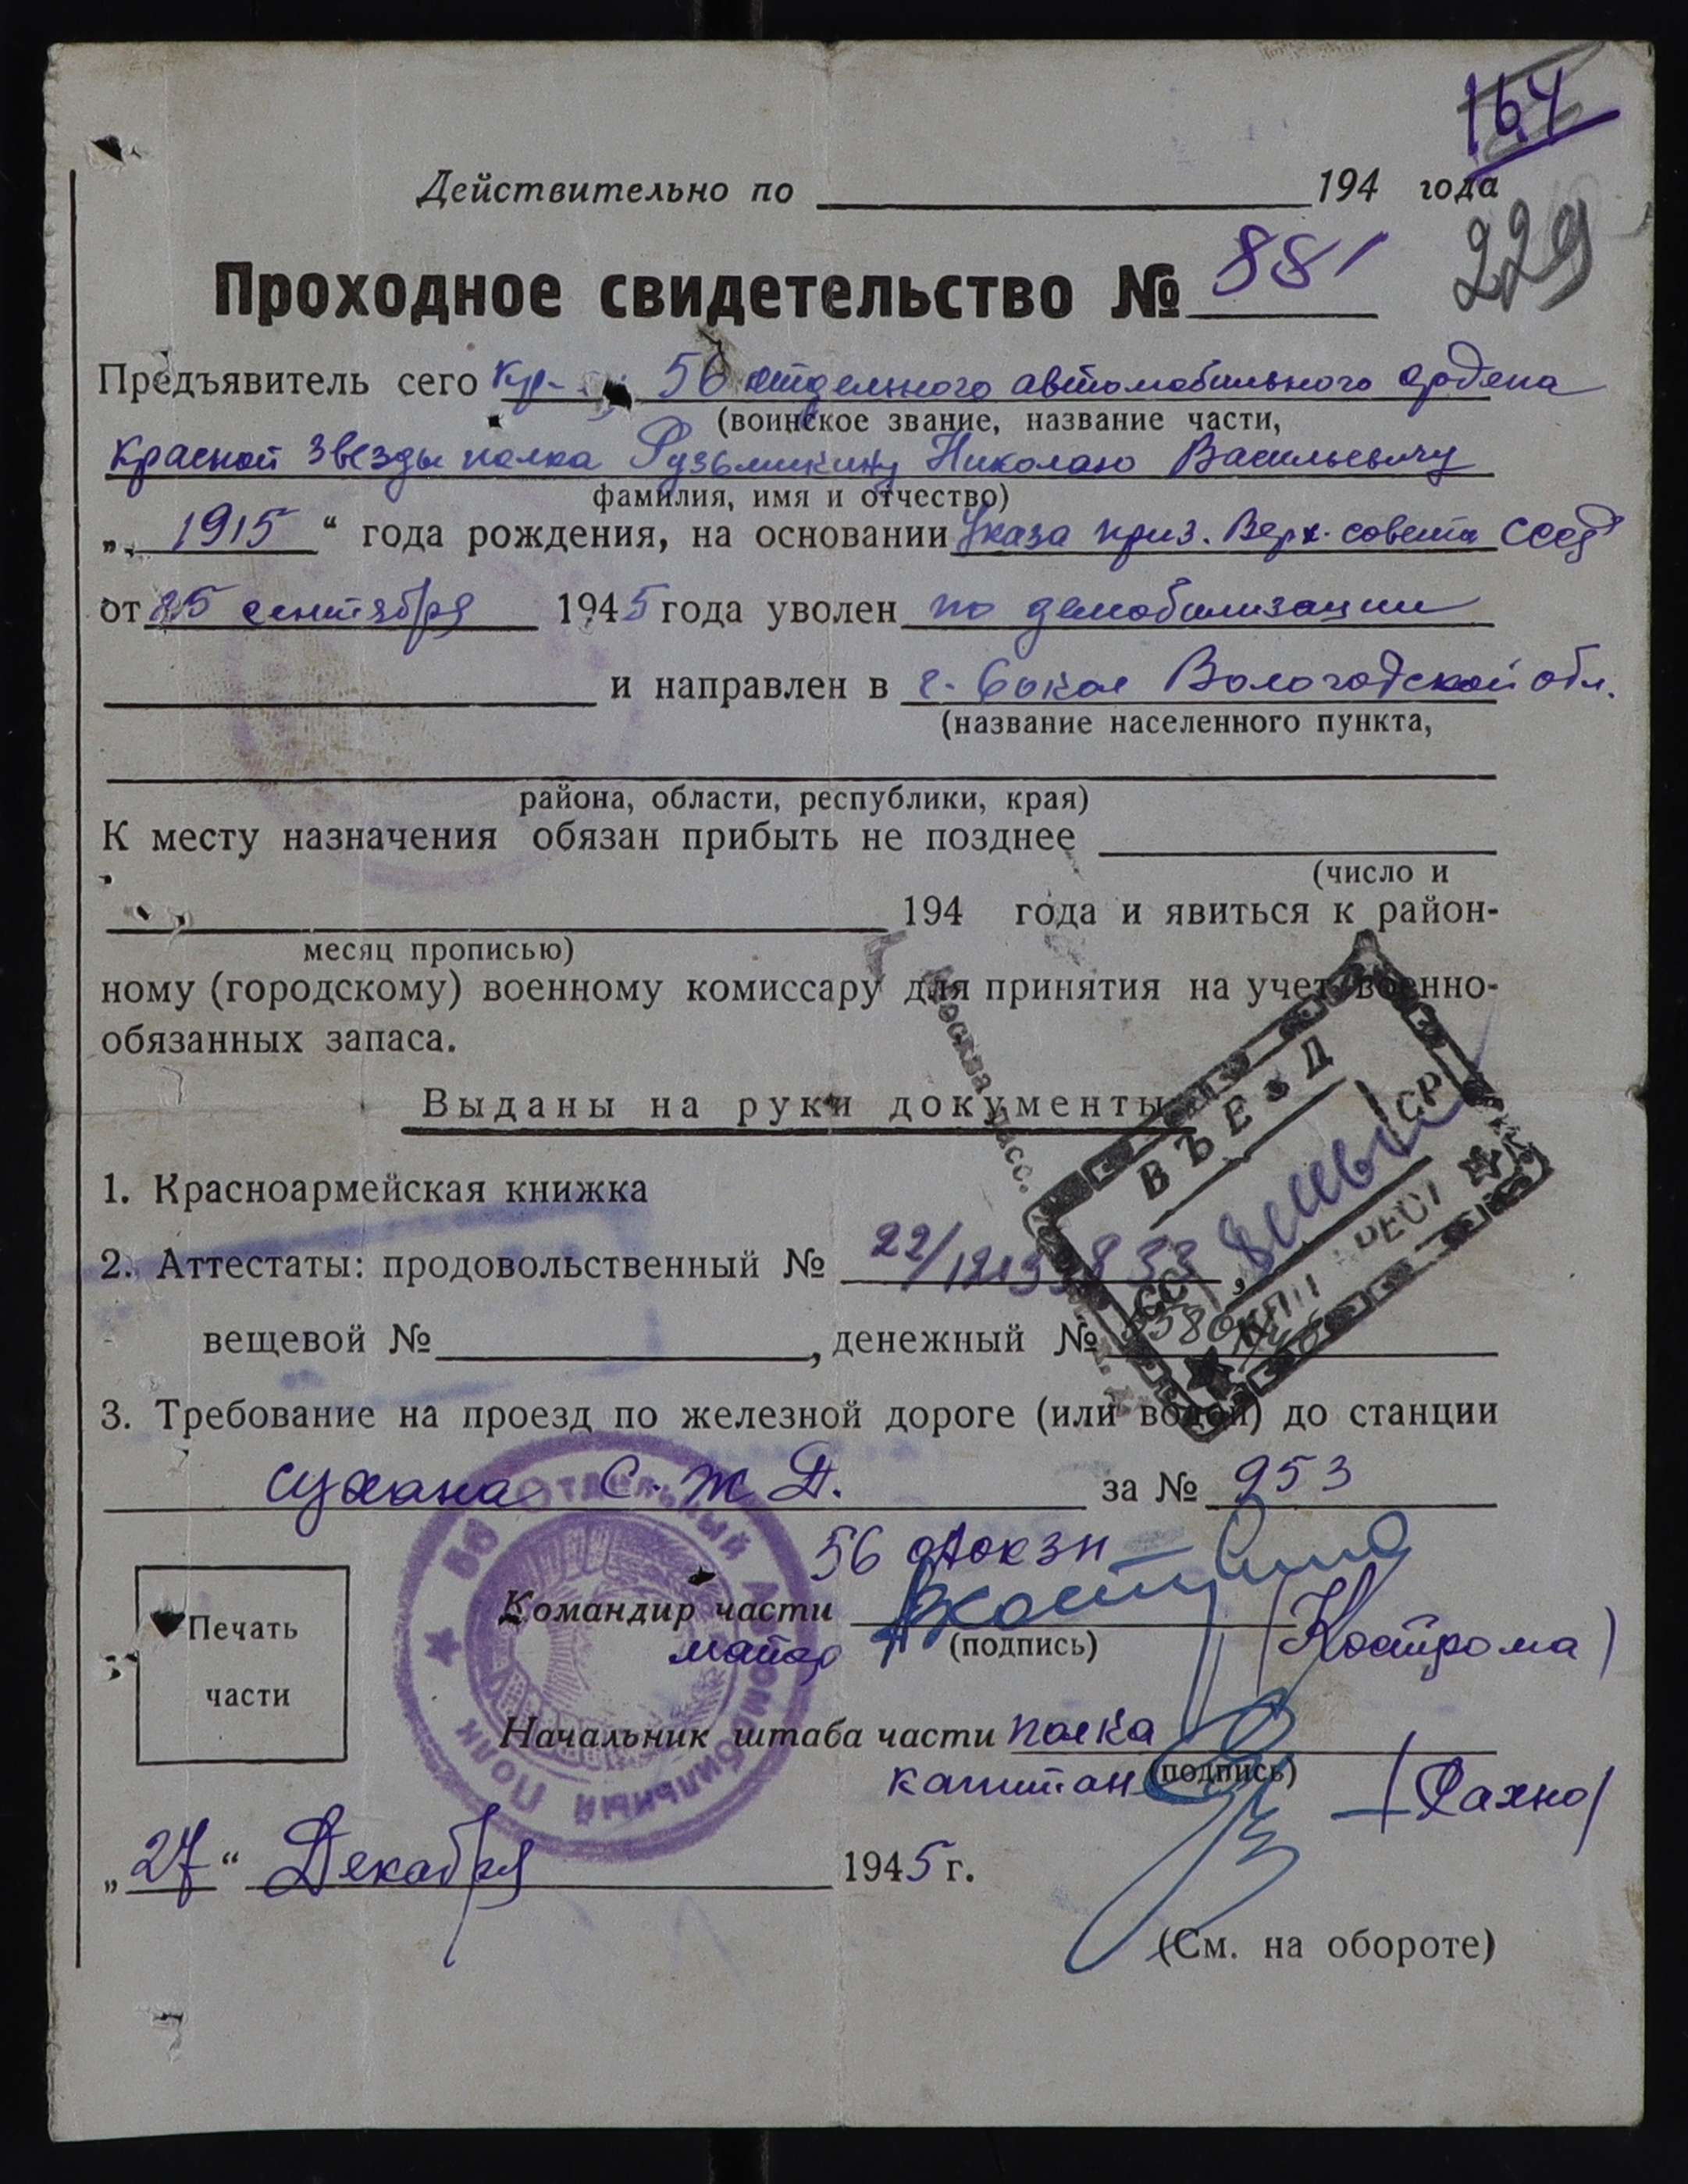 164
Действительно по 194 года
229
Проходное свидетельство № 881
Предъявитель сего кр-ц 56 отдельного автомобильного ордена
(воинское звание, название части,
Красной Звезды полка Николаю Васильевичу
фамилия, имя и отчество)
„ 1915 “ года рождения, на основании Указа през. Верх. совета СССР
от 25 сентября 1945 года уволен по демобилизации
и направлен в г. Сокол Вологодской обл.
(название населенного пункта,
района, области, республики, края)
К месту назначения обязан прибыть не позднее
(число и
194 года и явиться к район-
месяц прописью)
ному (городскому) военному комиссару для принятия на учет военно-
обязанных запаса.
Выданы на руки документы
ВЪЕЗД
1. Красноармейская книжка
2. Аттестаты: продовольственный № 22/12
вещевой № , денежный №
3. Требование на проезд по железной дороге (или водой) до станции
Сухона С. Ж. Д. за № 953
56 ОАОКЗП
Командир части
майор (подпись) (Кострома)
Печать
части
Начальник штаба части полка
капитан (подпись) /Рахно/
56 Отдельный Автомобильный Полк
„27“ Декабря 1945 г.
(См. на обороте)